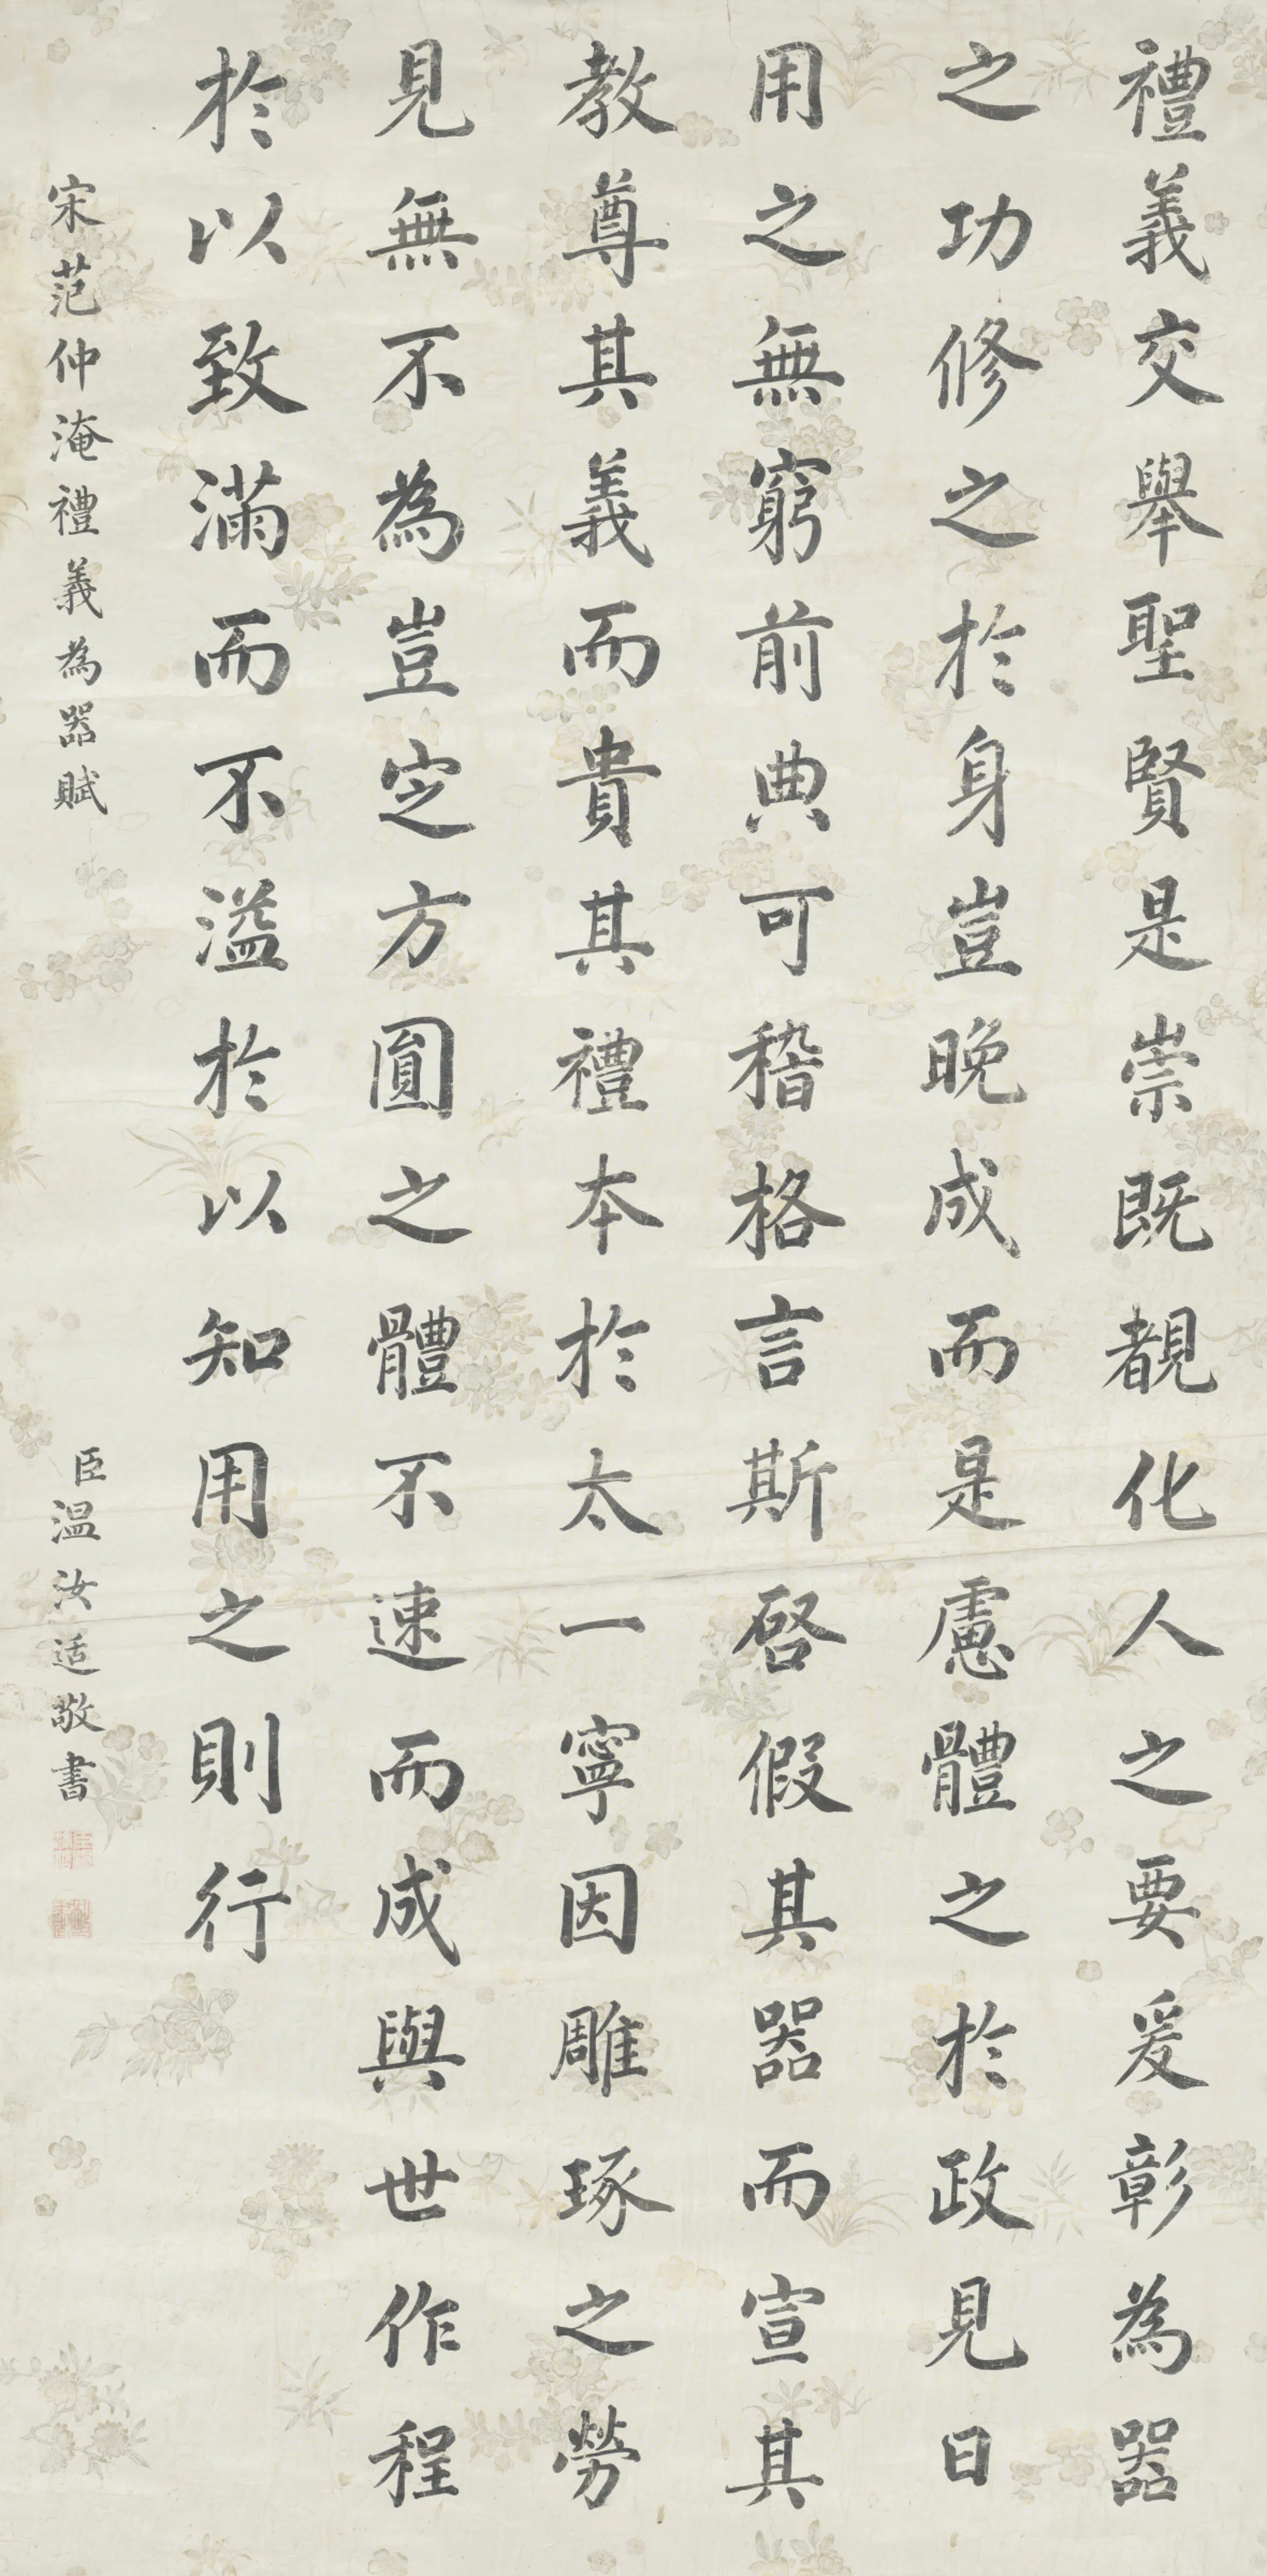 禮義交舉聖賢是崇既覩化人之要爰彰為器
之功修之於身豈晚成而是慮體之於政見日
用之無窮前典可稽格言斯啓假其器而宣其
教尊其義而貴其禮本於太一寧因雕琢之勞
見無不為豈定方圓之體不速而成與世作程
於以致滿而不溢於以知用之則行
宋范仲淹禮義為器賦
臣溫汝适敬書